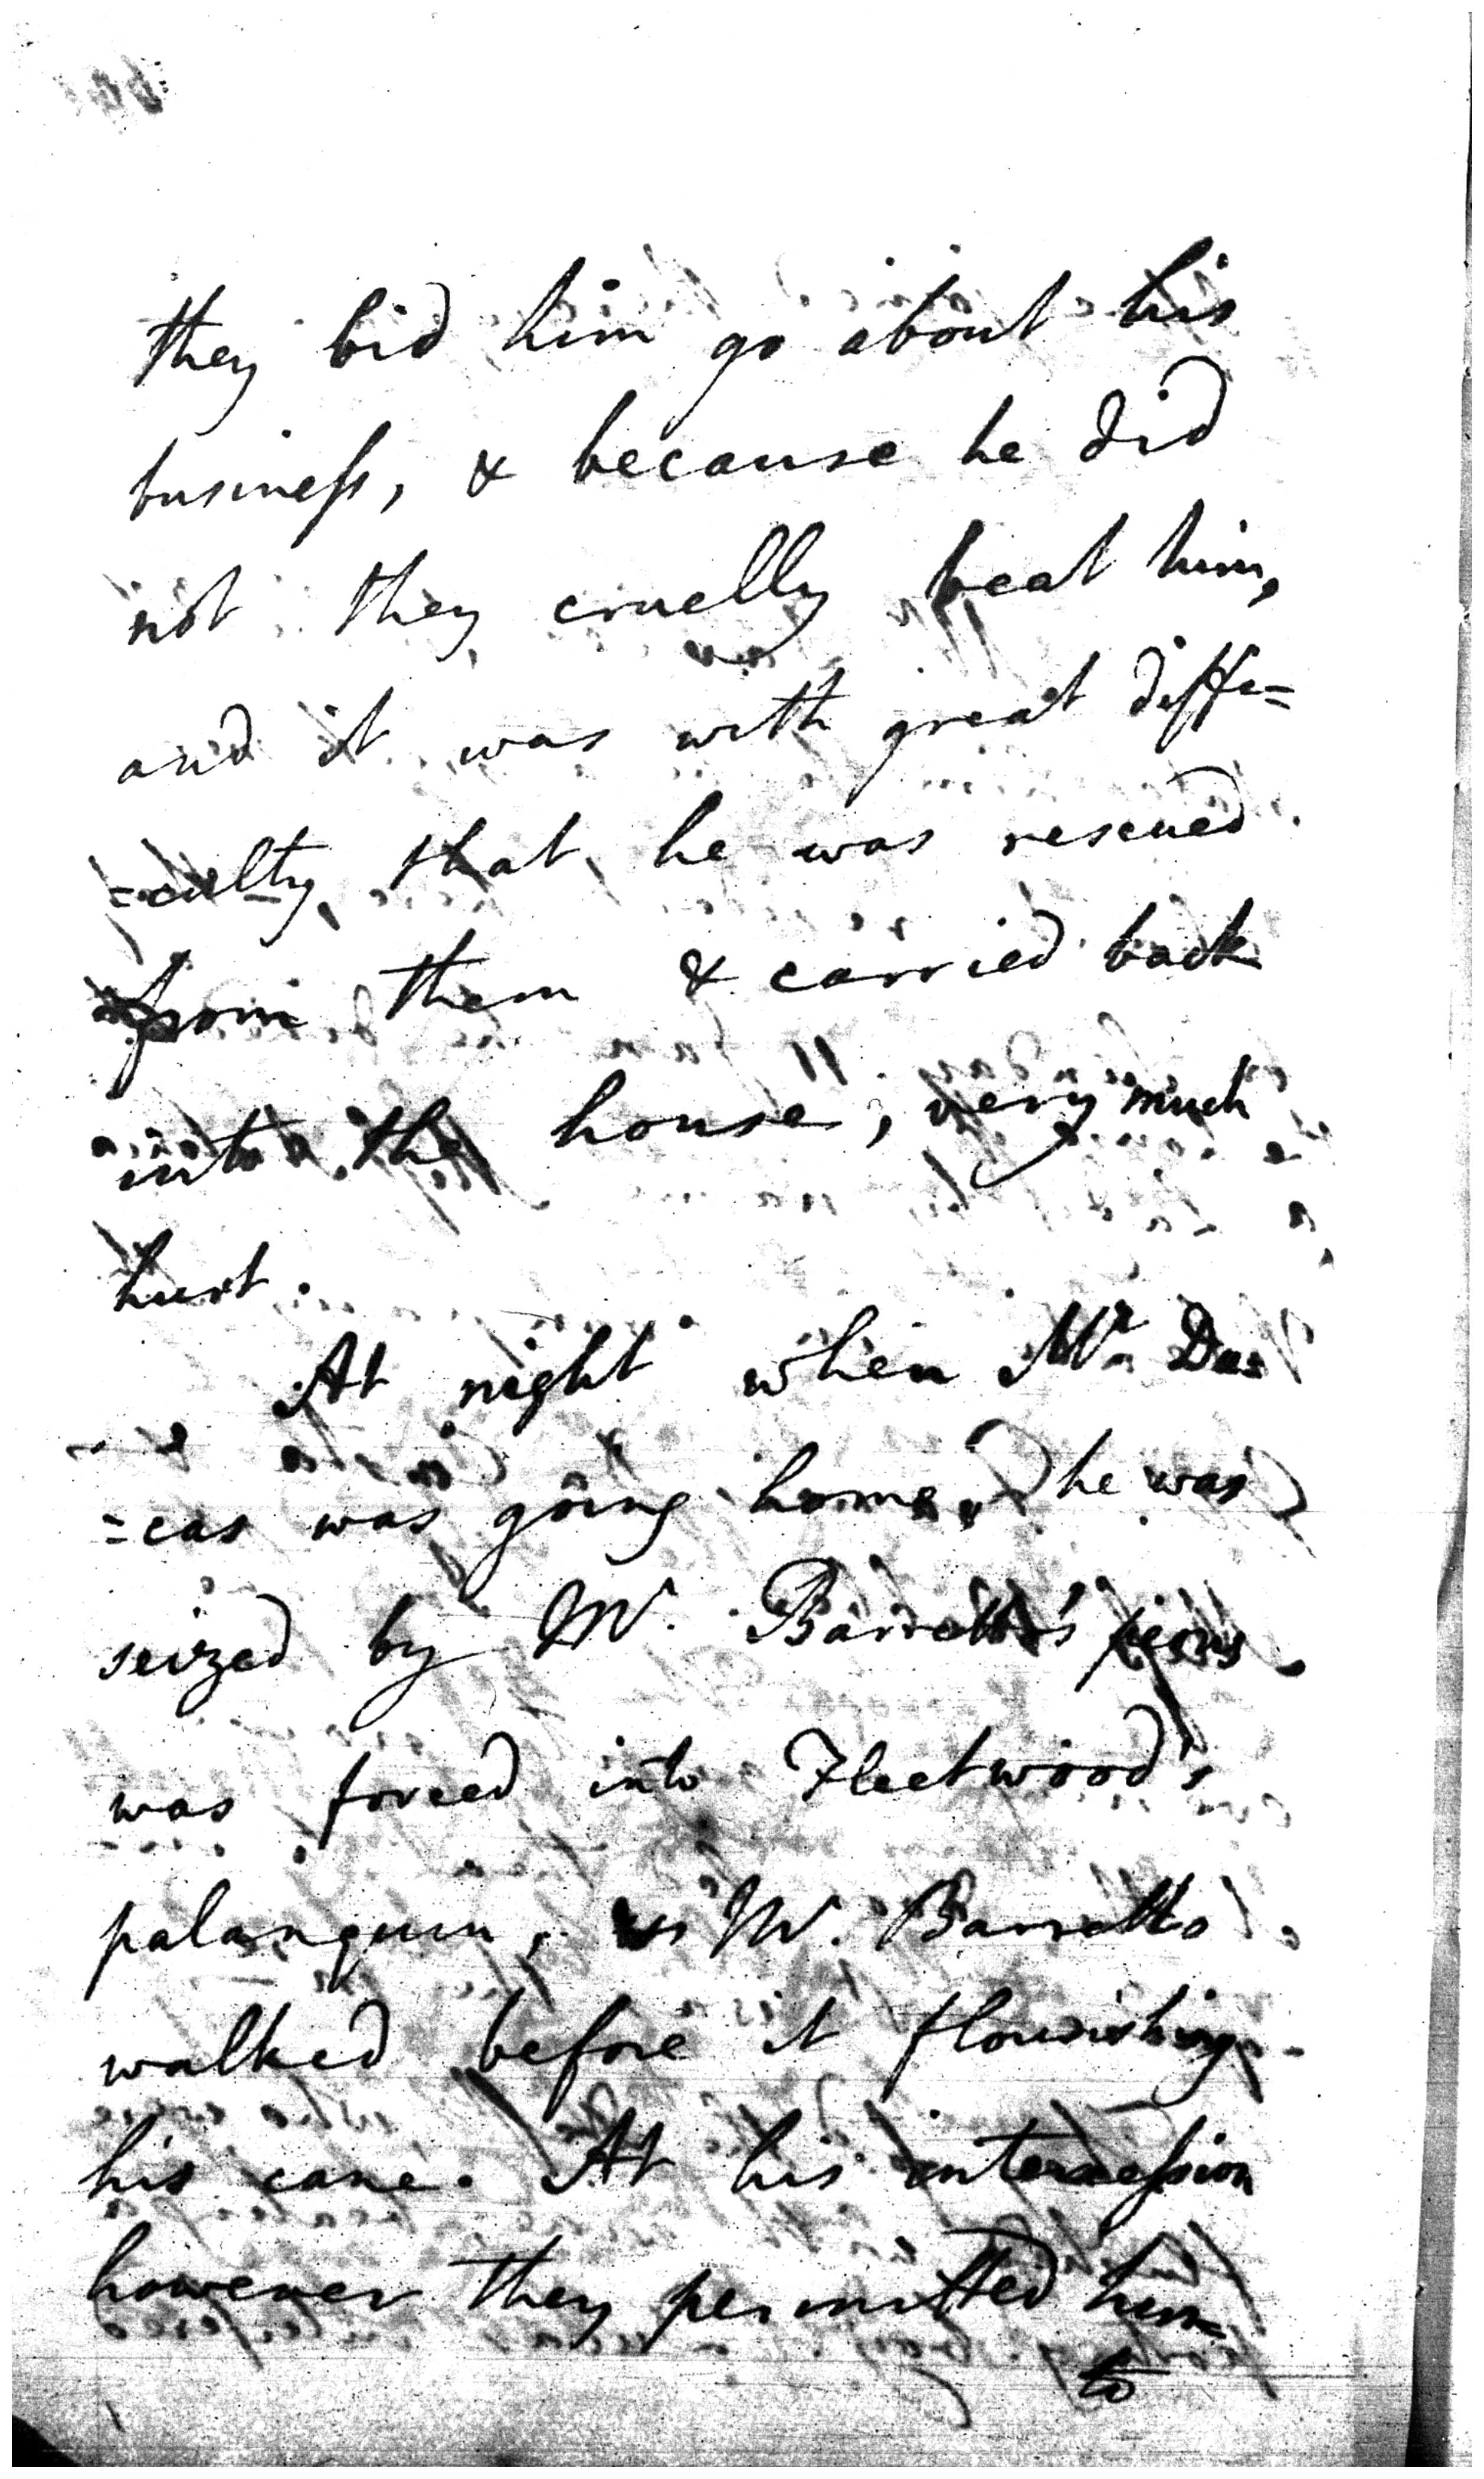 they bid him go about his
business, & because he did
not they cruelly beat him,
and it was with great diffi=
=culty that he was rescued
from them & carried back
into the house, very much
hurt.
At night when Mr. Du
=cas was going home, he was
seized by Mr. Barretto's peons
was forced into Fleetwood's
palanquin, & Mr. Barretto
walked before it flourishing
his cane. At his intercession
however they permitted him
to